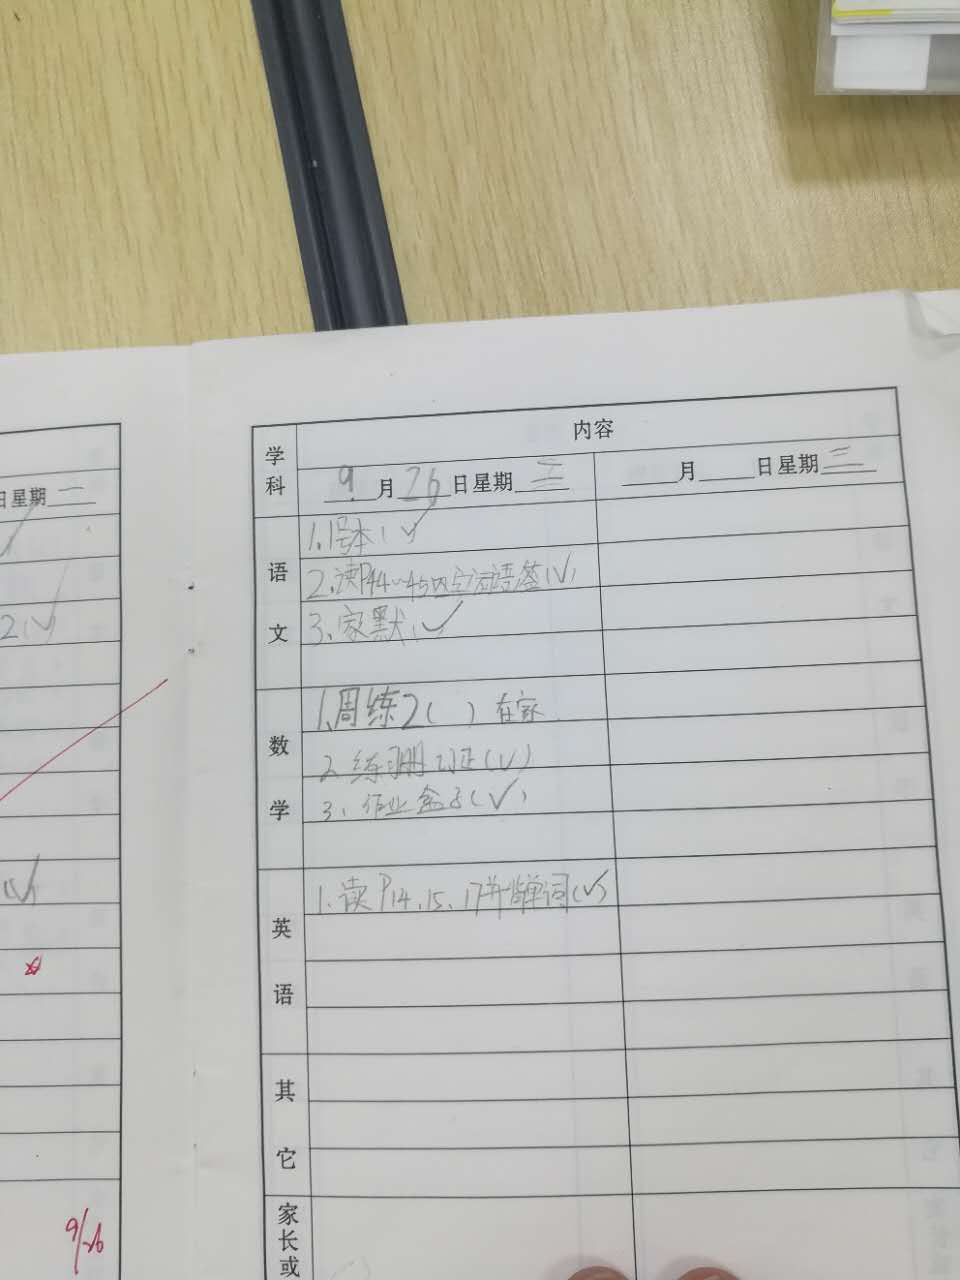 日星期二
2 ✓
9/26
学科
内容
9月26日星期三
月 日星期三
语文
1.1号本(✓
2.读P44~45内容词语签(✓)
3.家默(✓
数学
1.周练2( ) 在家
2.练习册订正(✓)
3.作业盒子(✓)
英语
1.读P14、15、17并背单词(✓)
其它
家长或